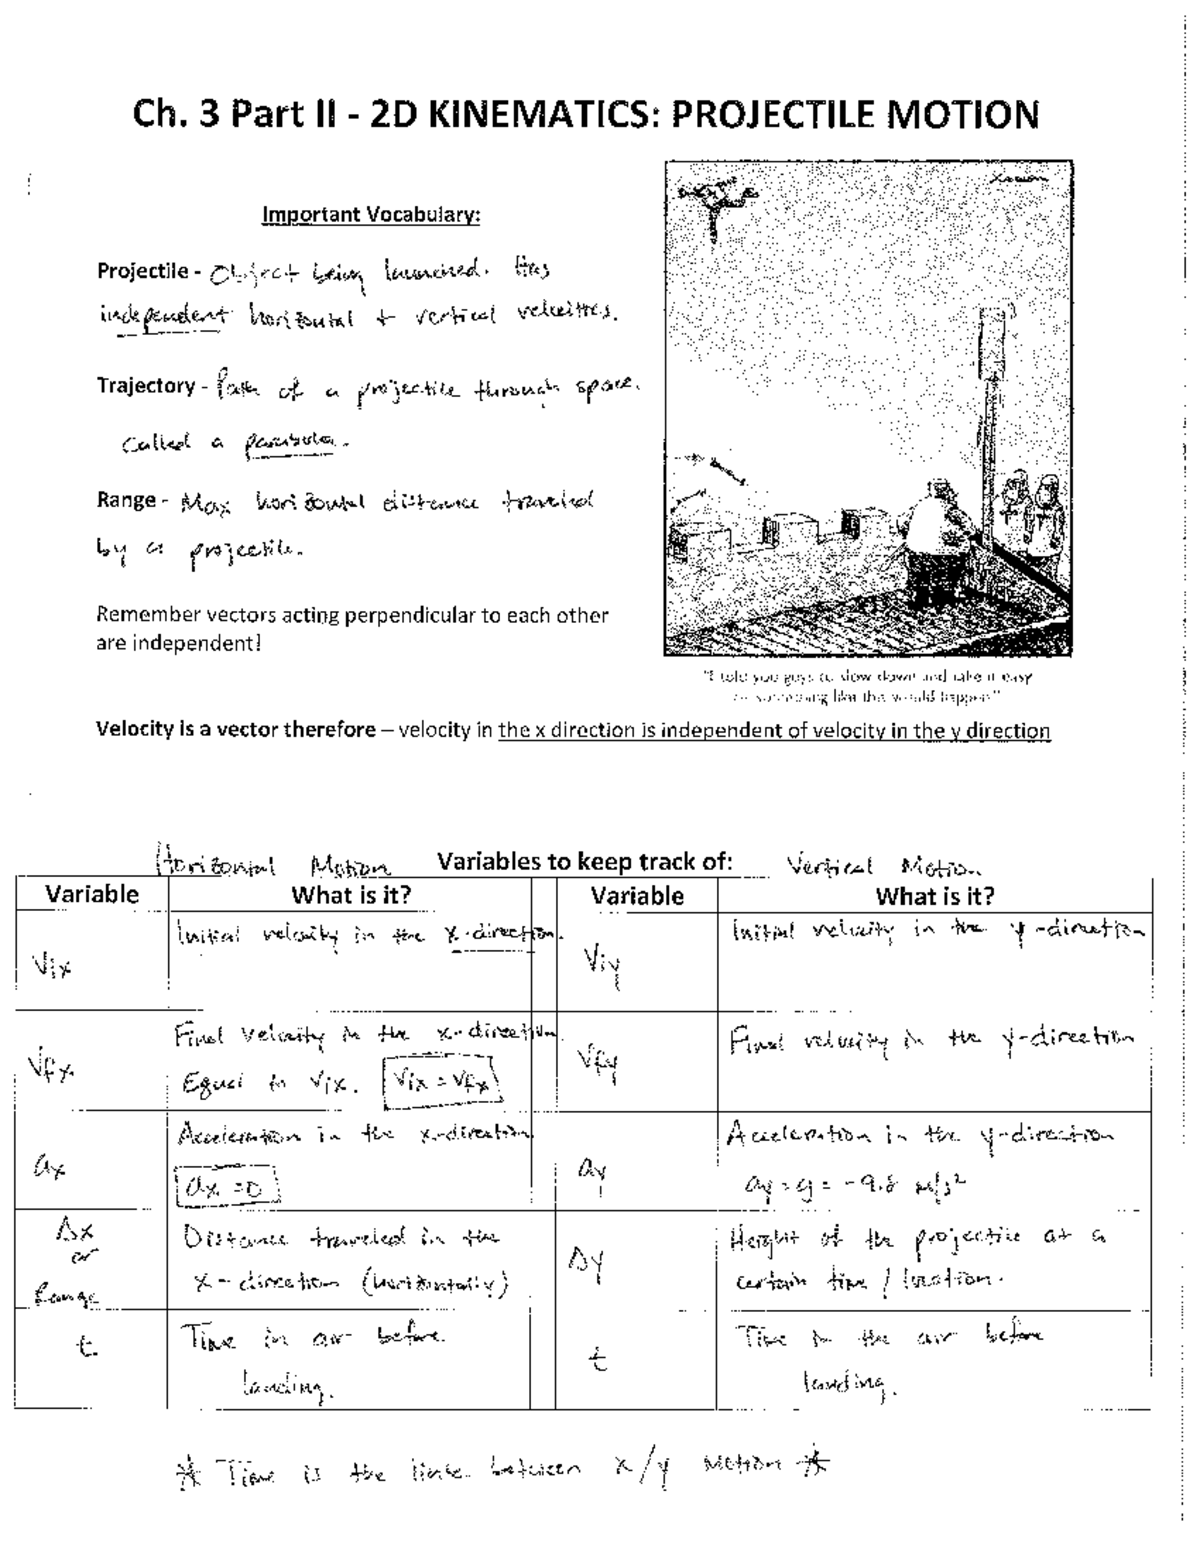 Ch. 3 Part II - 2D KINEMATICS: PROJECTILE MOTION
Important Vocabulary:
Projectile - Object being launched. Has
independent horizontal + vertical velocities.
Trajectory - Path of a projectile through space.
Called a parabola.
Range - Max horizontal distance traveled
by a projectile.
Remember vectors acting perpendicular to each other
are independent!
"I told you guys to slow down and take it easy
or something like this would happen"
Velocity is a vector therefore – velocity in the x direction is independent of velocity in the y direction
Horizontal Motion Variables to keep track of: Vertical Motion
Variable What is it? Variable What is it?
Vix Initial velocity in the x-direction. Viy Initial velocity in the y-direction
Vfx Final velocity in the x-direction. Vfy Final velocity in the y-direction
Equal to Vix. Vix = Vfx
ax Acceleration in the x-direction ay Acceleration in the y-direction
ax = 0 ay = g = -9.8 m/s²
Δx or Range Distance traveled in the Δy Height of the projectile at a
x-direction (horizontally) certain time / location.
t Time in air before t Time in the air before
landing. landing.
* Time is the link between x/y motion *